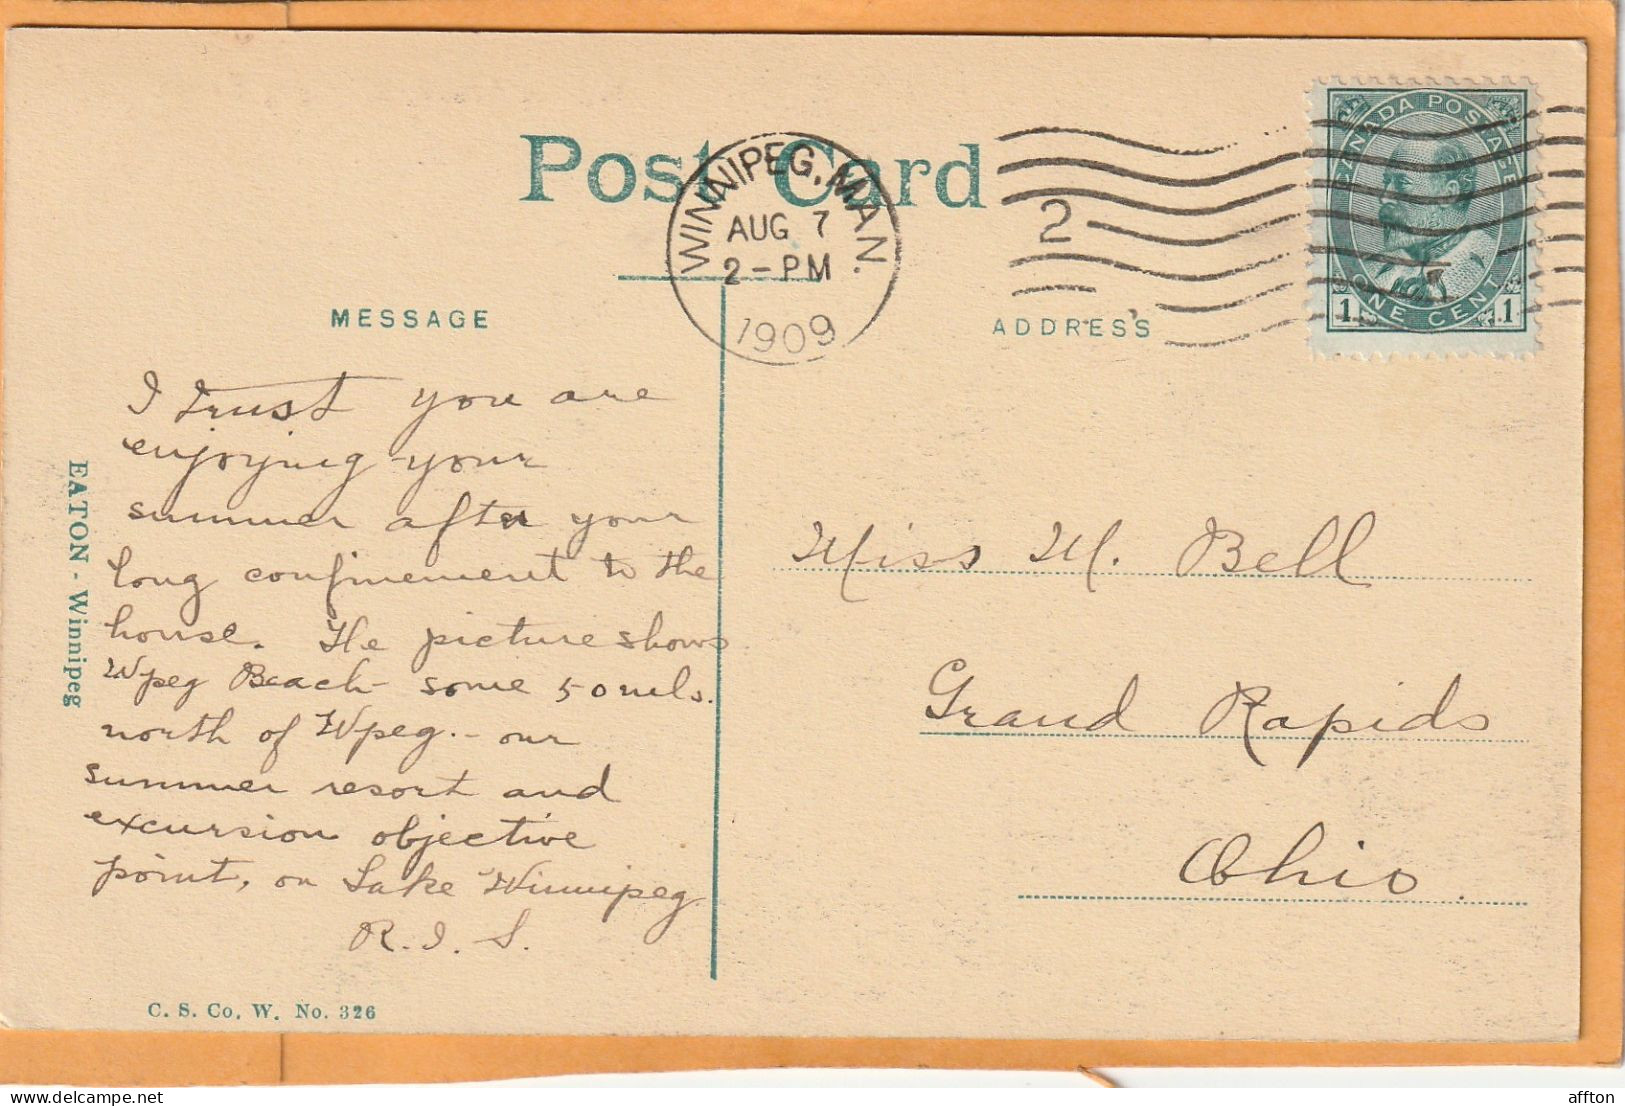 Post Card
WINNIPEG, MAN.
AUG 7
2-PM
1909
2
CANADA POSTAGE
ONE CENT
1 1
MESSAGE
ADDRESS
I trust you are
enjoying your
summer after your
long confinement to the
house. The picture shows
Wpeg Beach - some 50 mls.
north of Wpeg. - our
summer resort and
excursion objective
point, on Lake Winnipeg.
R. I. S.
Miss M. Bell
Grand Rapids
Ohio.
EATON - Winnipeg
C. S. Co. W. No. 326
affton